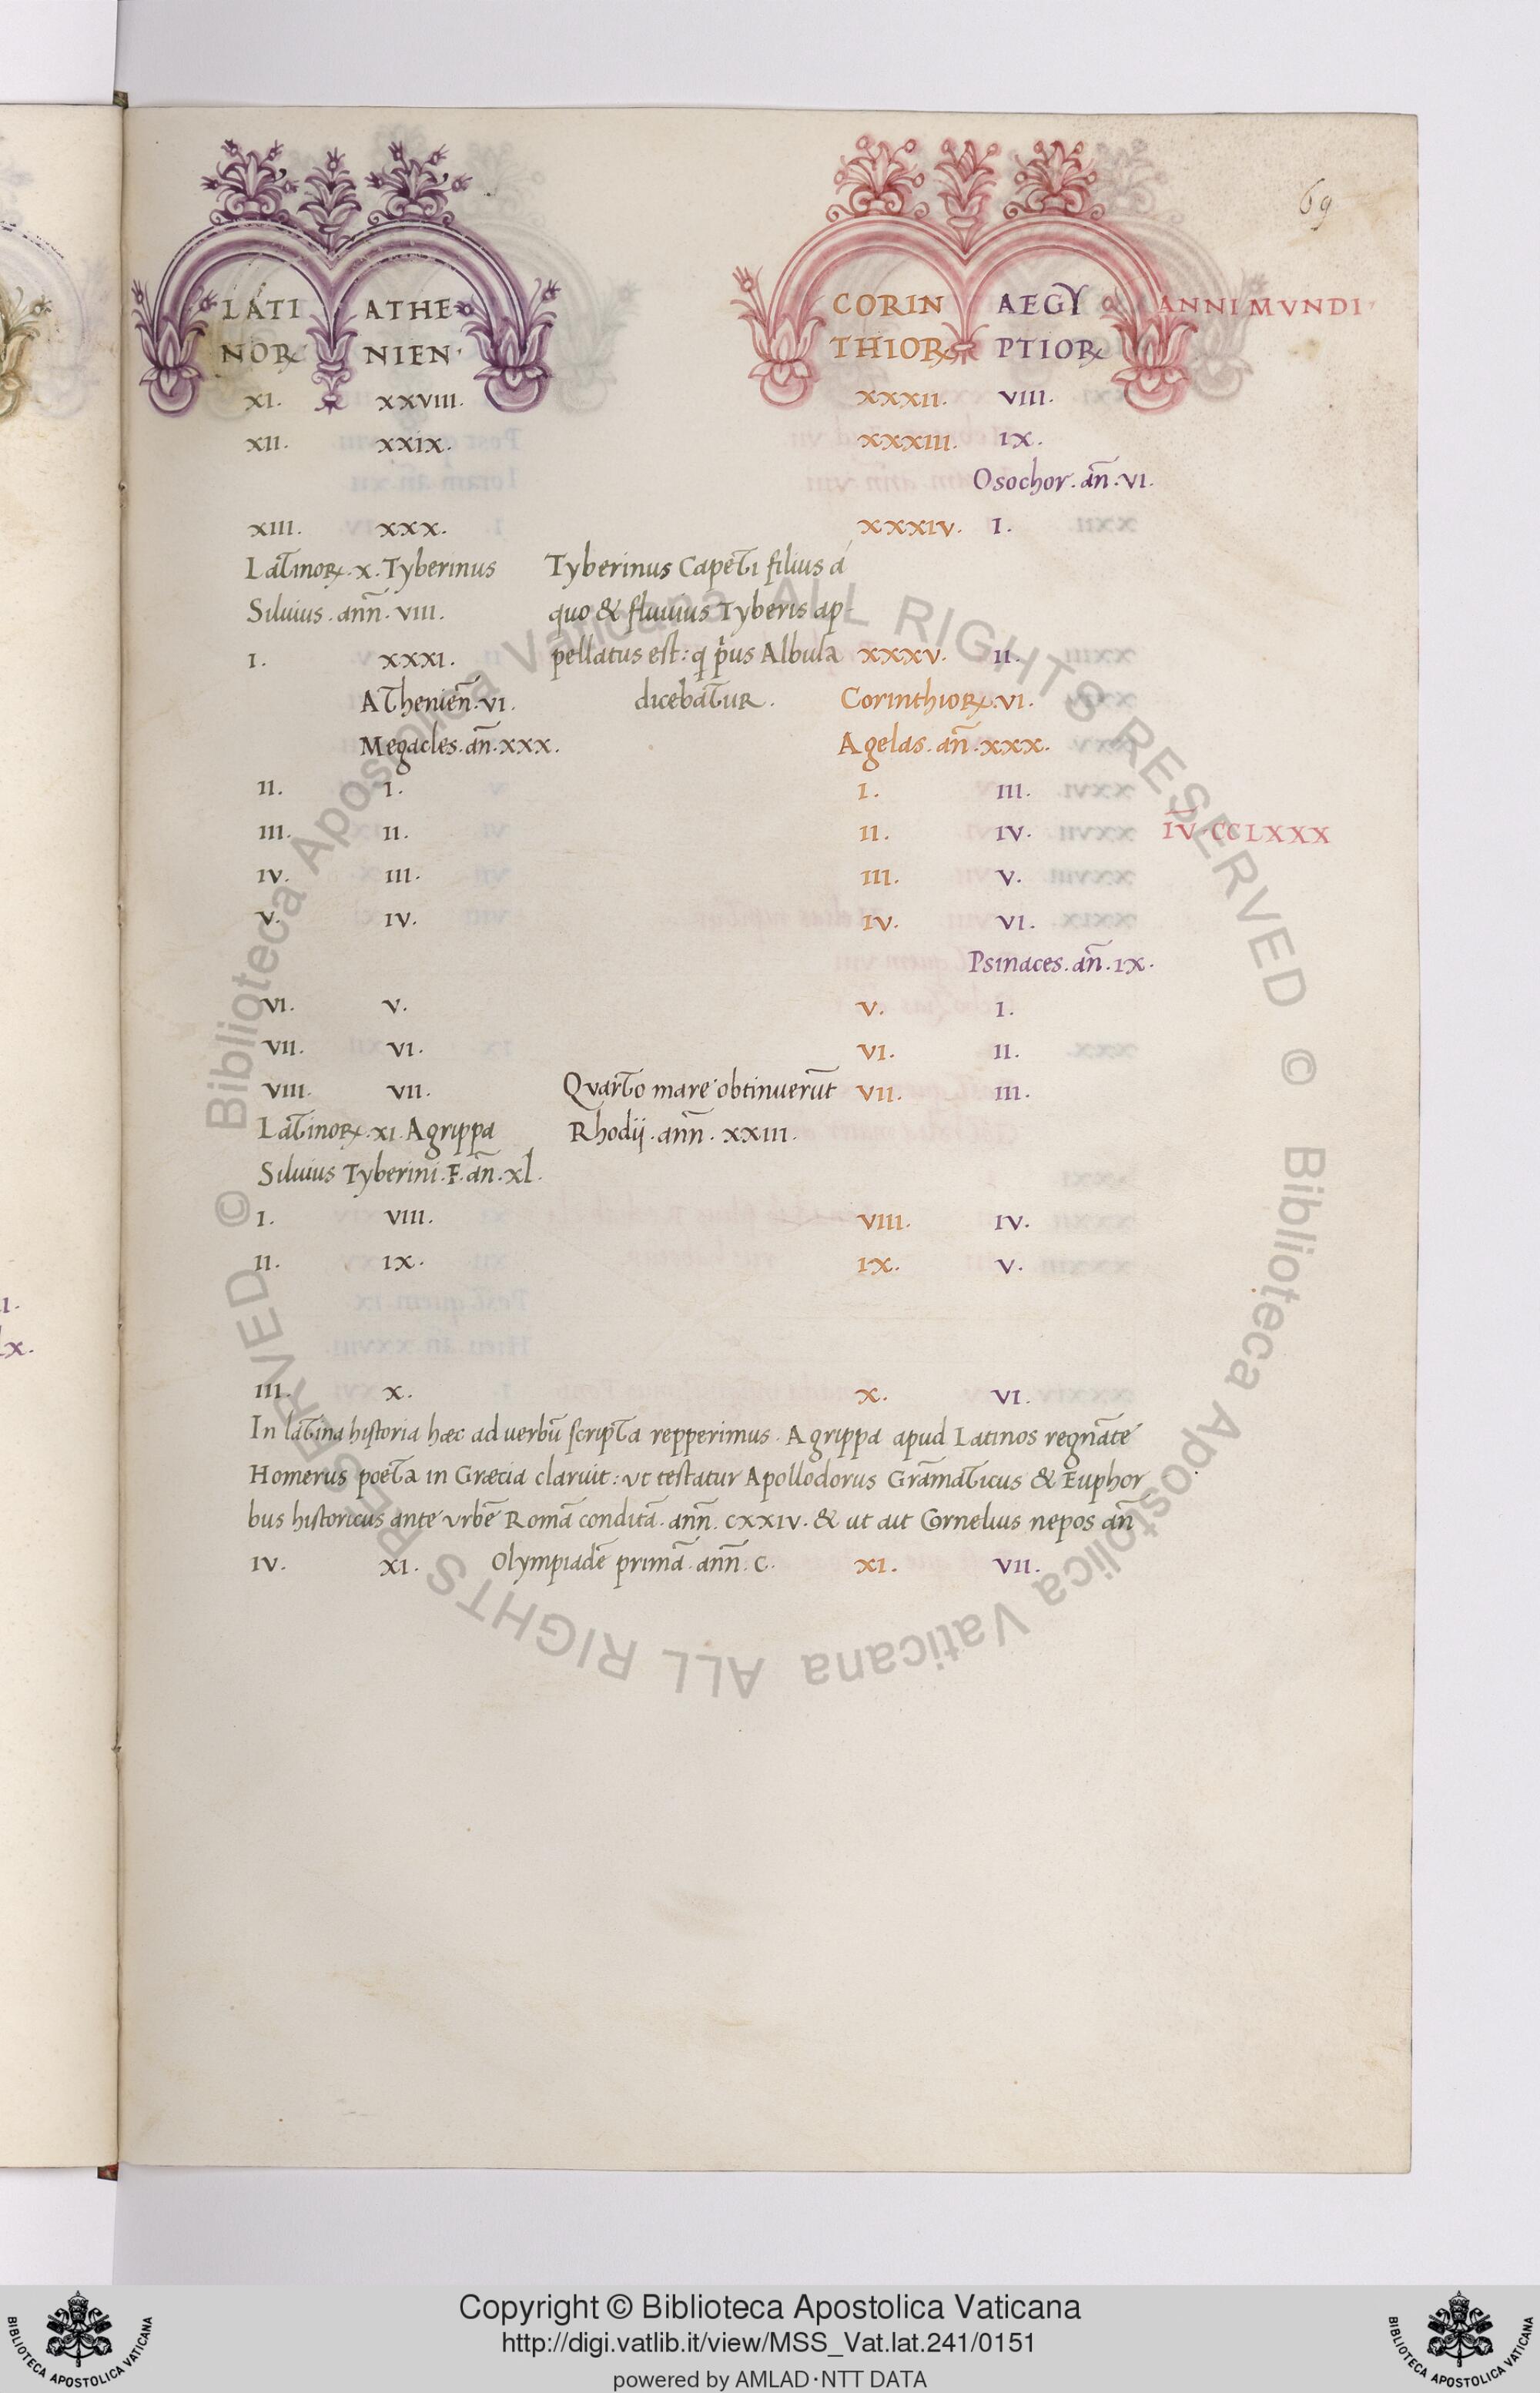 69
LATI ATHE CORIN AEGY ANNI MVNDI
NOR NIEN THIOR PTIOR
XI. XXVIII. XXXII. VIII.
XII. XXIX. XXXIII. IX.
Osochor. añ. VI.
XIII. XXX. XXXIV. I.
Latinoꝝ. X. Tyberinus Tyberinus Capeti filius á
Siluius. anñ. VIII. quo & fluuius Tyberis ap-
I. XXXI. pellatus est: q prius Albula XXXV. II.
Athenień. VI. dicebatur. Corinthioꝝ. VI.
Megacles. añ. XXX. Agelas. añ. XXX.
II. I. I. III.
III. II. II. IV. IV. CCLXXX
IV. III. III. V.
V. IV. IV. VI.
Psinaces. añ. IX.
VI. V. V. I.
VII. VI. VI. II.
VIII. VII. Quarto mare obtinuerūt VII. III.
Latinoꝝ. XI. Agrippa Rhodij. anñ. XXIII.
Siluius Tyberini. F. añ. xl.
I. VIII. VIII. IV.
II. IX. IX. V.
III. X. X. VI.
In latina historia hæc ad uerbū scripta repperimus. Agrippa apud Latinos regnāte
Homerus poeta in Græcia claruit: ut testatur Apollodorus Grāmaticus & Euphor
bus historicus ante urbē Romā conditā. anñ. CXXIV. & ut ait Cornelius nepos añ
IV. XI. Olympiadē primā. anñ. C. XI. VII.
© Biblioteca Apostolica Vaticana ALL RIGHTS RESERVED © Biblioteca Apostolica Vaticana ALL RIGHTS RESERVED
Copyright © Biblioteca Apostolica Vaticana
http://digi.vatlib.it/view/MSS_Vat.lat.241/0151
powered by AMLAD·NTT DATA
BIBLIOTECA APOSTOLICA VATICANA
BIBLIOTECA APOSTOLICA VATICANA